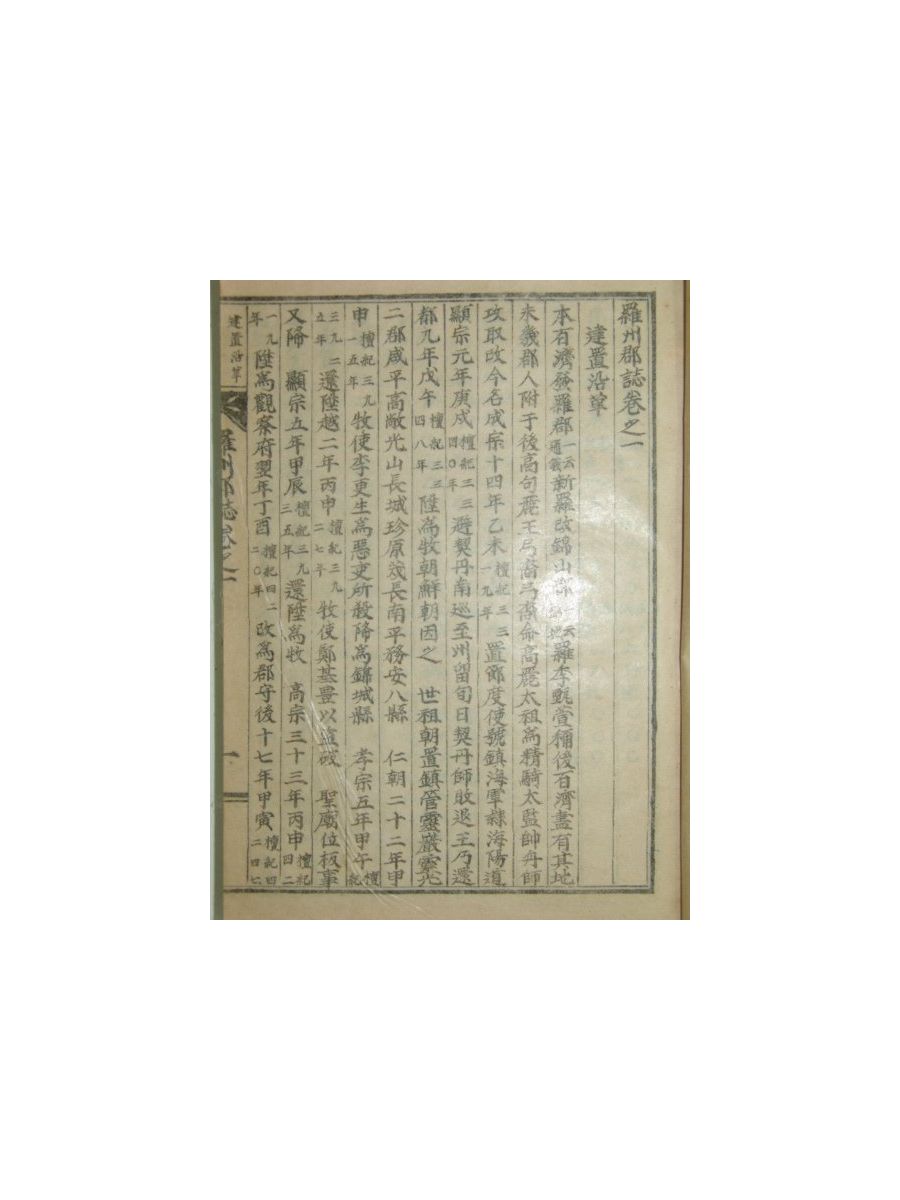 羅州郡誌卷之一
建置沿革
本百濟發羅郡一云通義新羅改錦山郡一云羅季甄萱稱後百濟盡有其地
未幾郡人附于後高句麗王弓裔弓裔命高麗太祖爲精騎太監帥舟師
攻取改今名成宗十四年乙未檀紀三三一九年置節度使號鎮海軍隸海陽道
顯宗元年庚戌檀紀三三四〇年避契丹南巡至州留旬日契丹師敗退王乃還
都九年戊午檀紀三三四八年陞爲牧朝鮮朝因之 世祖朝置鎮管靈巖靈光
二郡咸平高敞光山長城珍原茂長南平務安八縣 仁朝二十二年甲
申檀紀三九一五年牧使李更生爲惡吏所殺降爲錦城縣 孝宗五年甲午檀紀
三九二五年還陞越二年丙申檀紀三九二七年牧使鄭基豊以 聖廟位板事
又降 顯宗五年甲辰檀紀三九三五年還陞爲牧 高宗三十三年丙申檀紀四二
一九年陞爲觀察府翌年丁酉檀紀四二二〇年改爲郡守後十七年甲寅檀紀四二四七
建置沿革
羅州郡誌卷之一
一